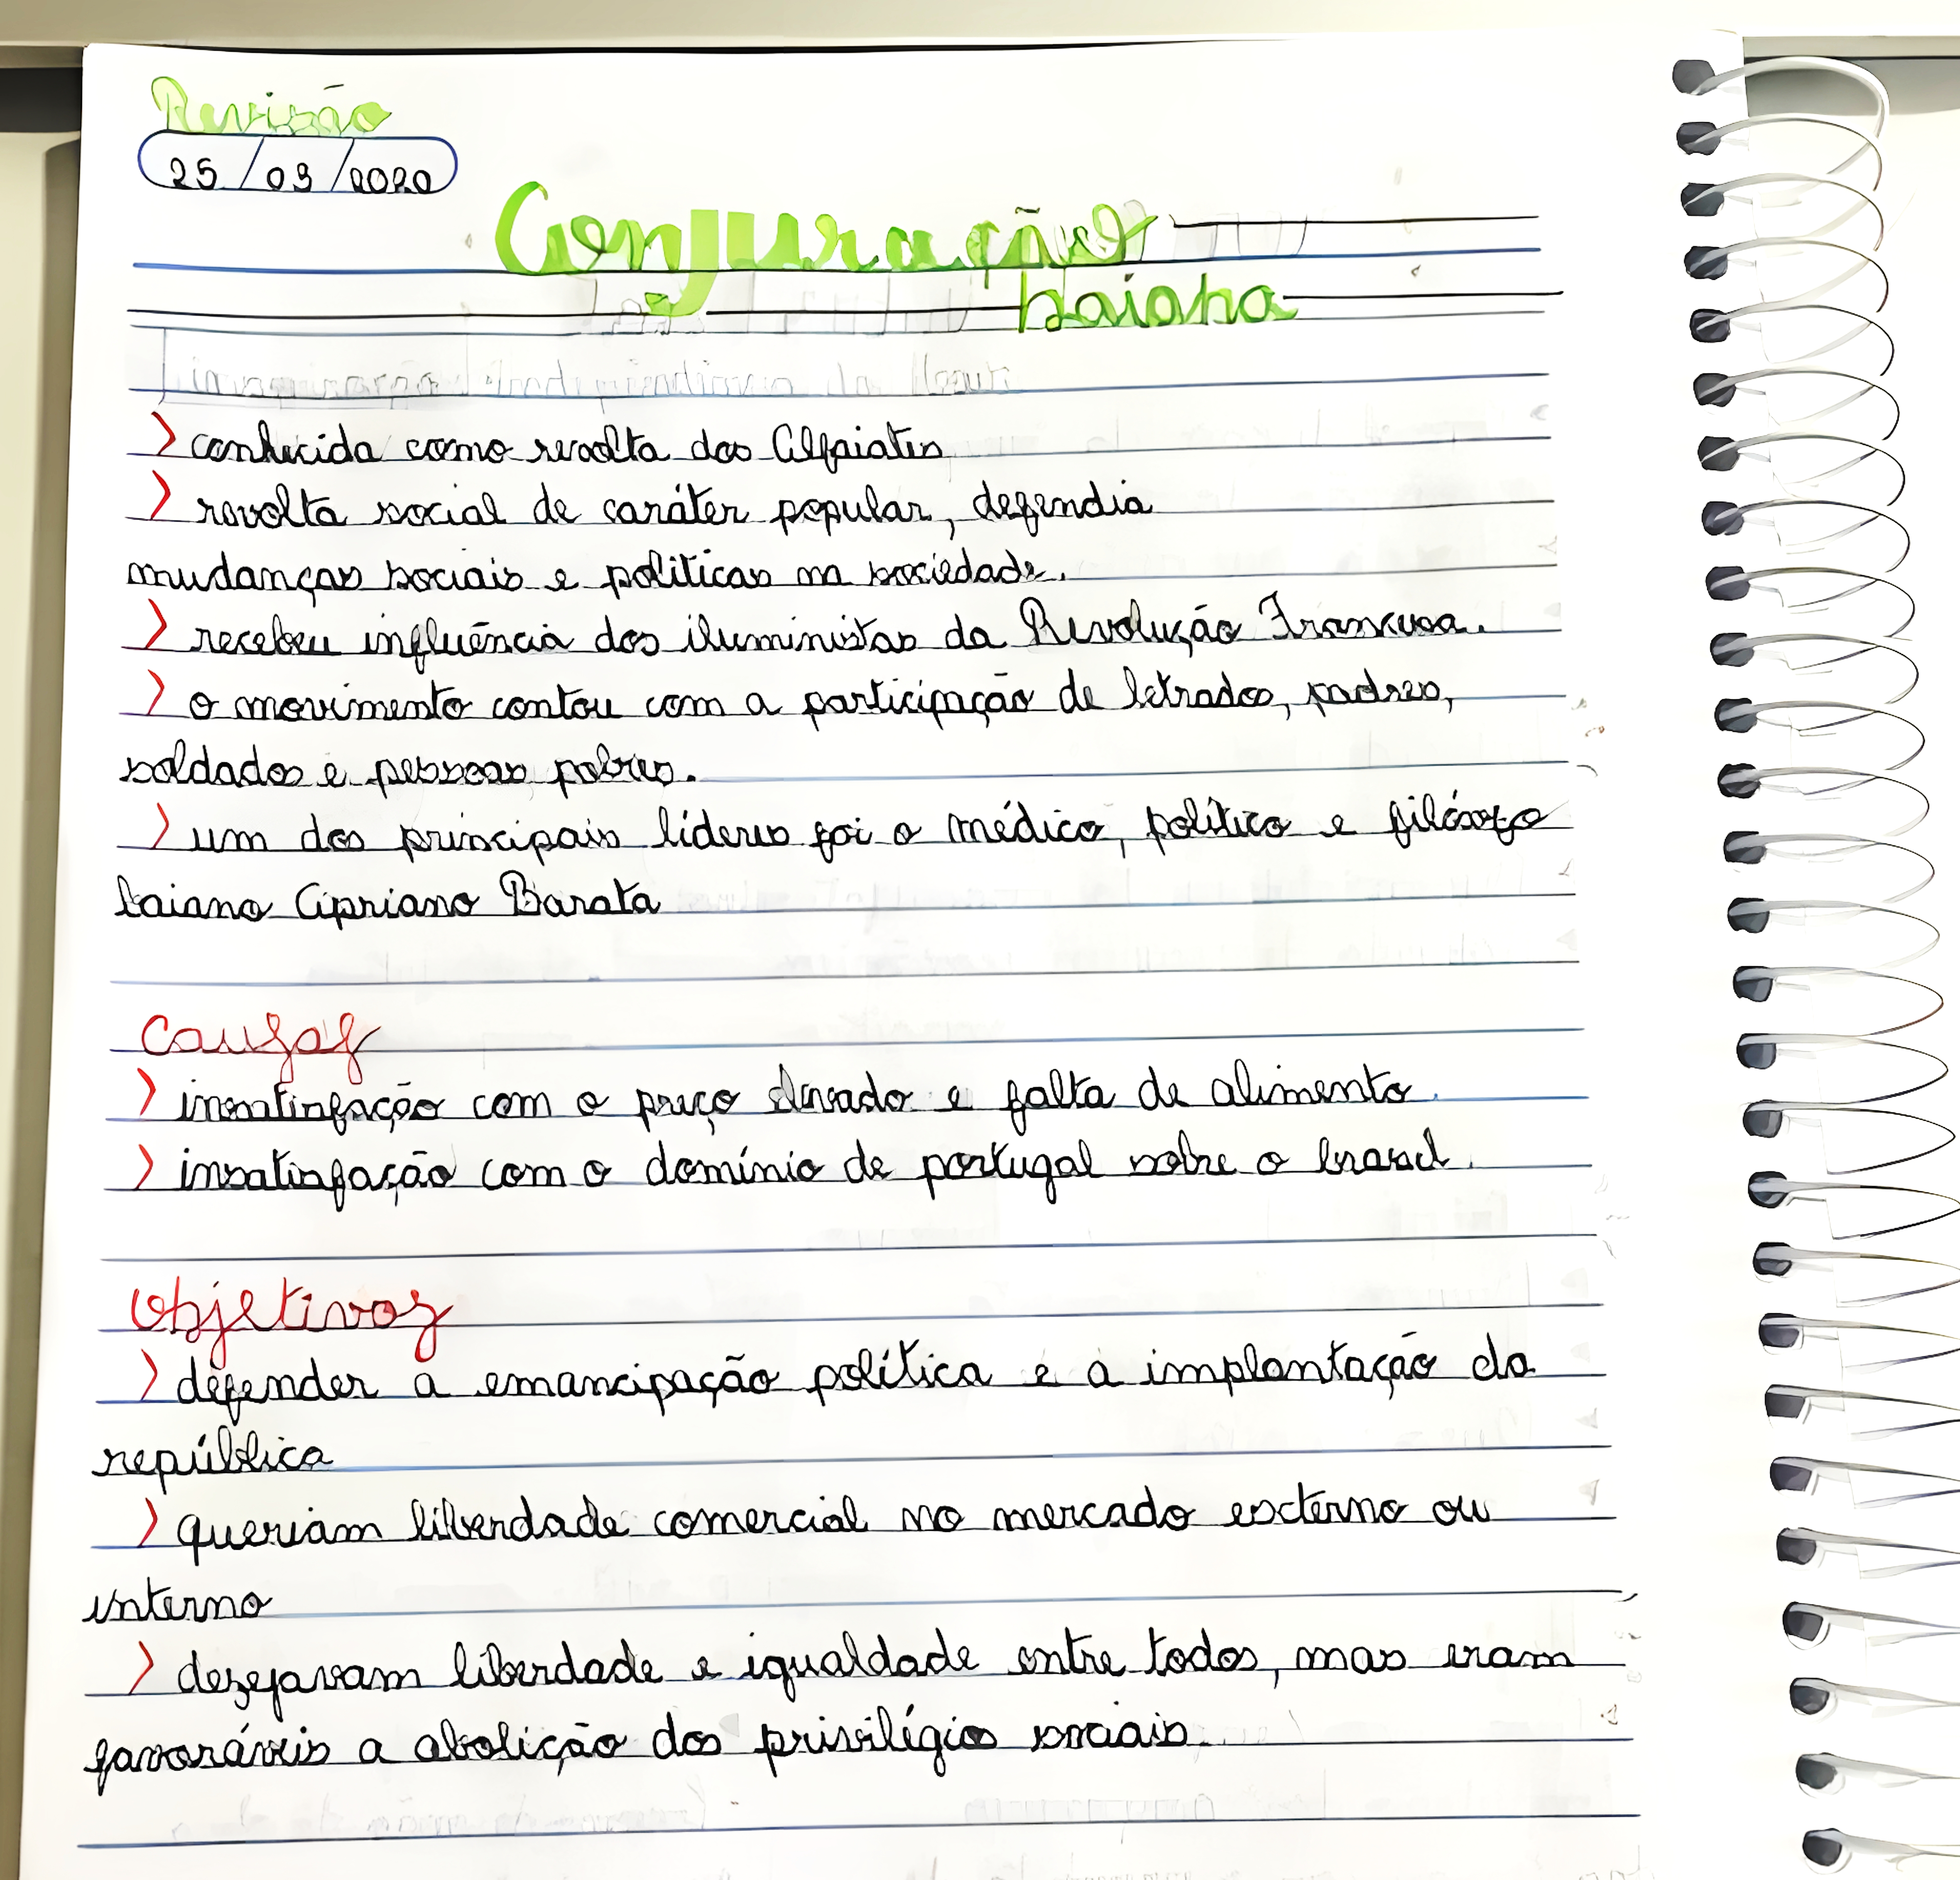 Revisão
25/09/2020
Conjuração
baiana
> conhecida como revolta dos Alfaiates
> revolta social de caráter popular, defendia
mudanças sociais e políticas na sociedade.
> recebeu influência dos iluministas da Revolução Francesa.
> o movimento contou com a participação de letrados, padres,
soldados e pessoas pobres.
> um dos principais líderes foi o médico, político e filósofo
baiano Cipriano Barata
Causas
> insatisfação com o preço elevado e falta de alimento.
> insatisfação com o domínio de portugal sobre o brasil.
Objetivos
> defender a emancipação política e a implantação da
república
> queriam liberdade comercial no mercado externo ou
interno
> dezejavam liberdade e igualdade entre todos, mas eram
favoráveis a abolição dos privilégios sociais.